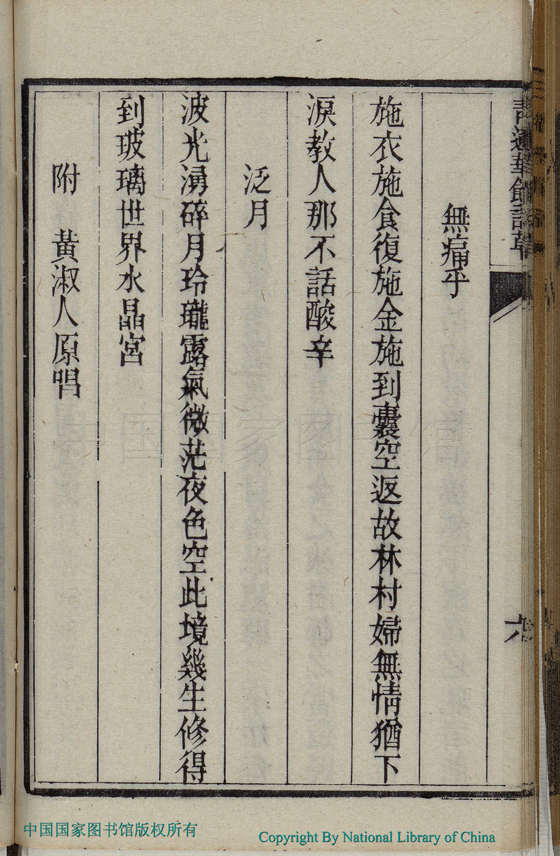 青蓮華館詩草
六
無痛乎
施衣施食復施金施到囊空返故林村婦無情猶下
淚教人那不話酸辛
泛月
波光湧碎月玲瓏露氣微茫夜色空此境幾生修得
到玻璃世界水晶宮
附　黃淑人原唱
中国国家图书馆版权所有
Copyright By National Library of China